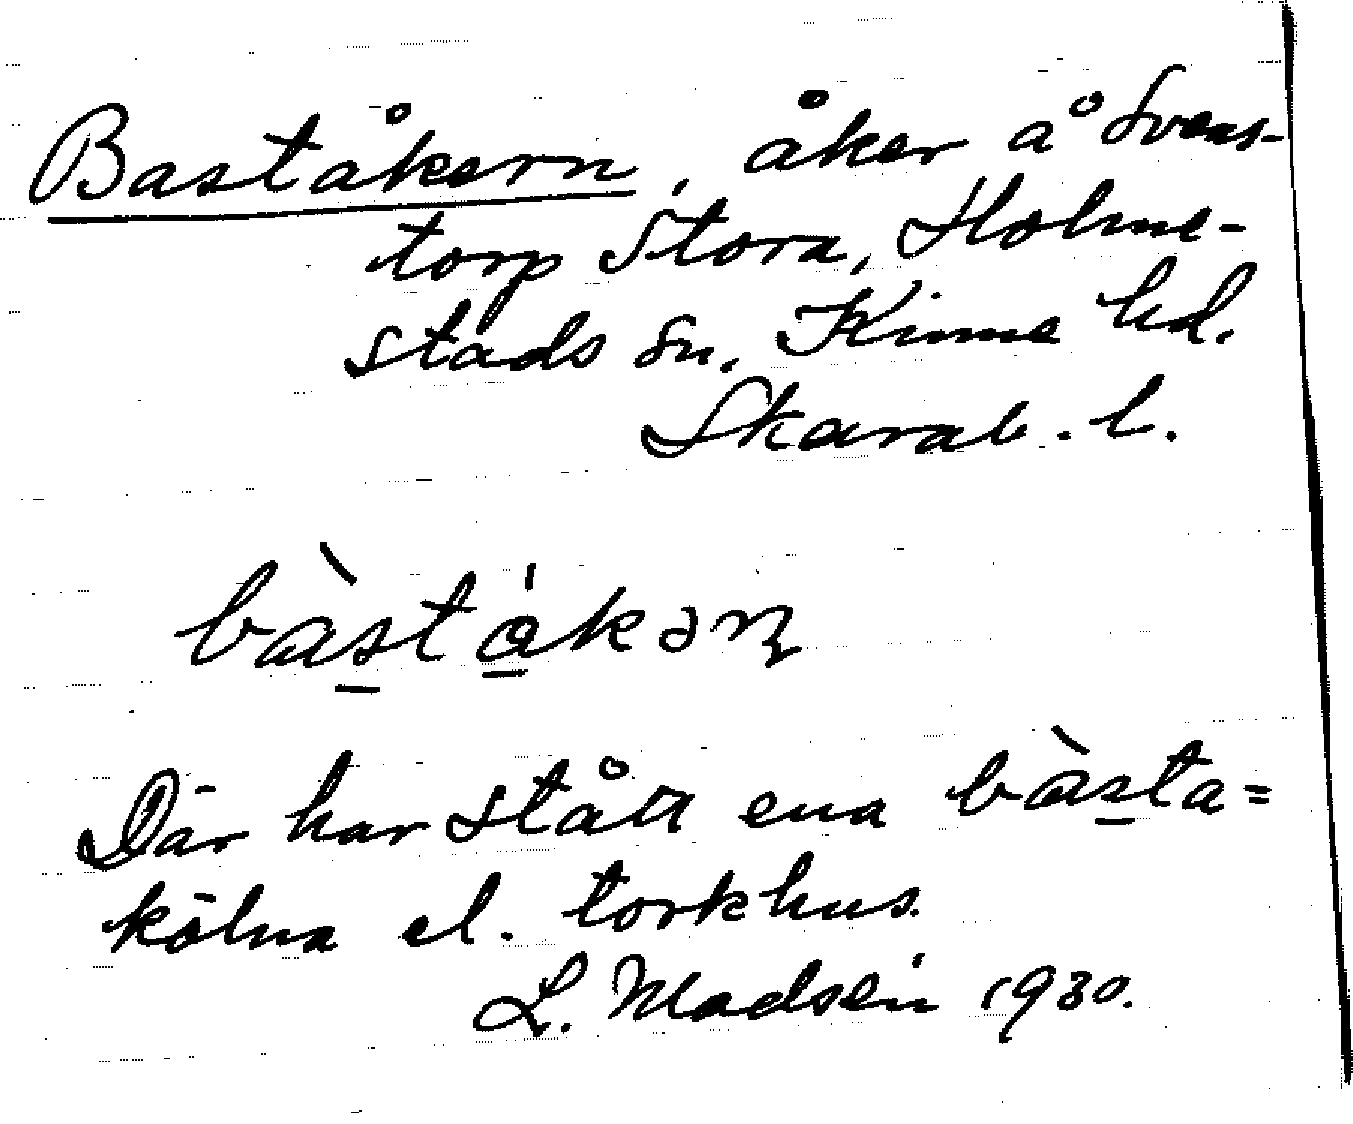 Baståkern, åker å Svens-
torp Stora, Holme-
stads sn, Kinne hd.
Skarab. l.
bàstå̍kəɳ
Där har stått ena bàsta=
kölna el. torkhus.
L. Madsén 1930.